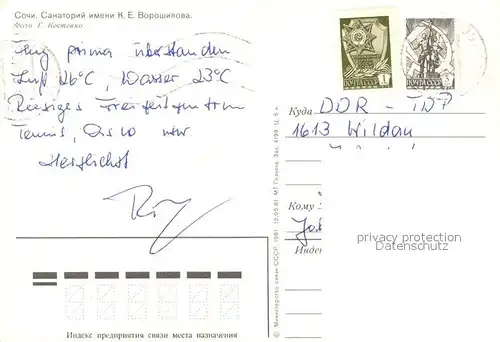 Сочи. Санаторий имени К. Е. Ворошилова.
Фото Г. Костенко
Flug prima überstanden
Luft 26°C, Wasser 23°C
Riesiges Freizeitzentrum
Tennis, Disko usw
Herzlichst
ПОЧТА СССР
1
ПОЧТА СССР
Куда DDR - ГДР
1613 Wildau
Кому
Индекс
privacy protection
watermark
© Министерство связи СССР, 1981 12.05.81. МТ Гознака. Зак. 4198. Ц. 5 к.
Индекс предприятия связи места назначения